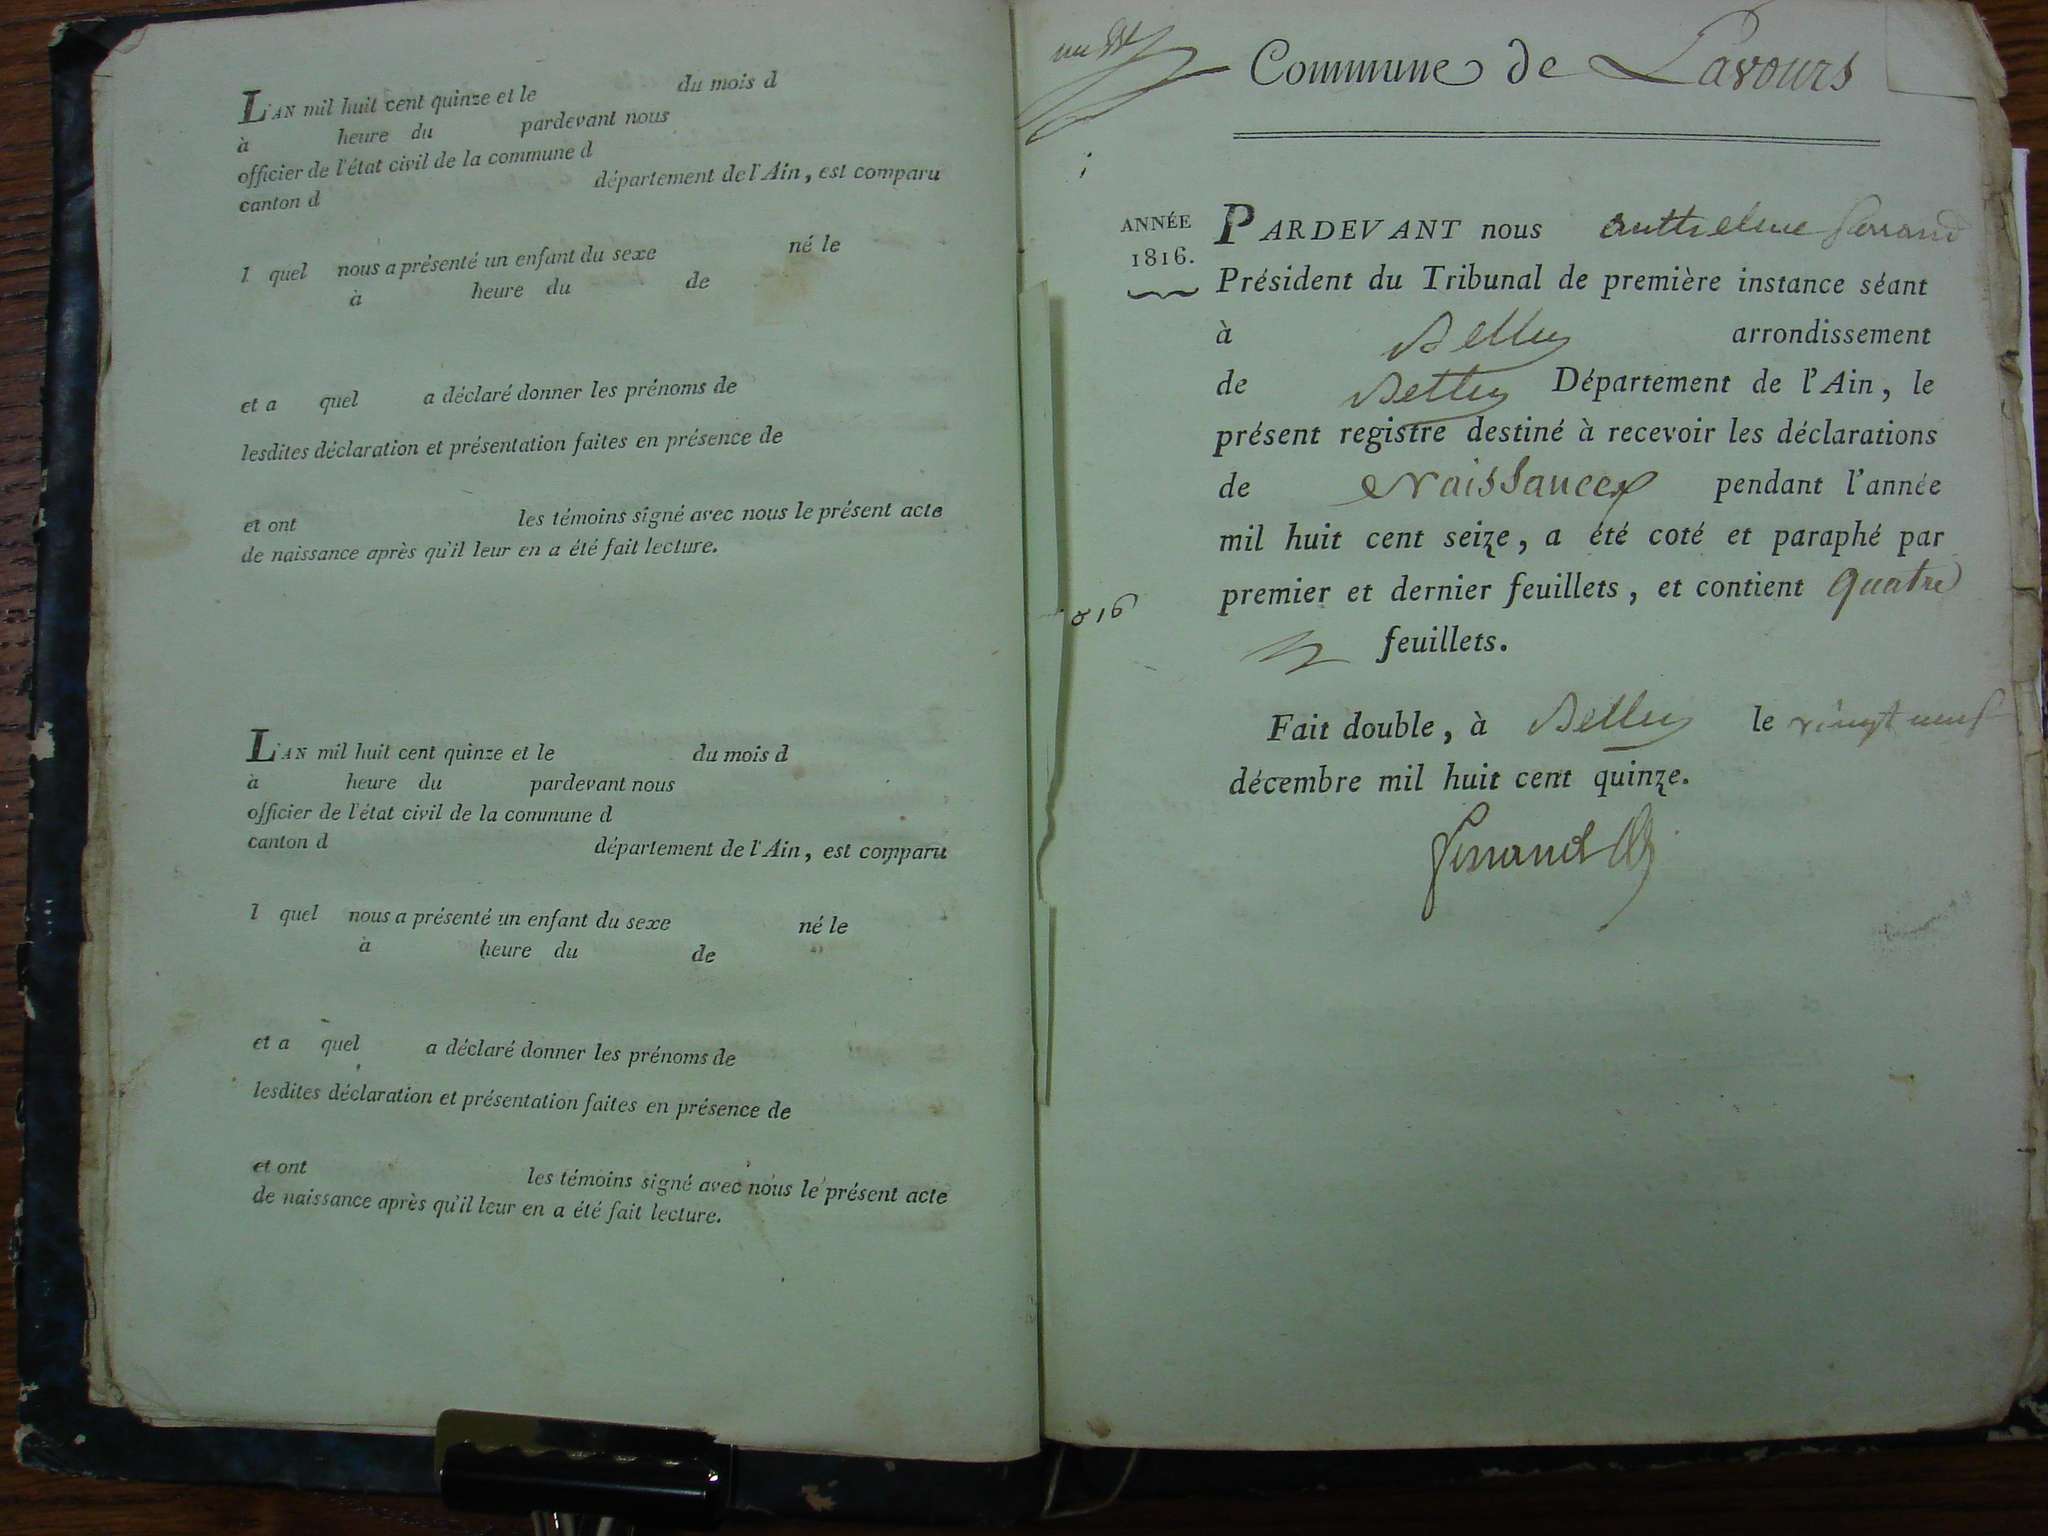 L'AN mil huit cent quinze et le du mois d
à heure du pardevant nous
officier de l'état civil de la commune d
canton d département de l'Ain, est comparu
l quel nous a présenté un enfant du sexe né le
à heure du de
et a quel a déclaré donner les prénoms de
lesdites déclaration et présentation faites en présence de
et ont les témoins signé avec nous le présent acte
de naissance après qu'il leur en a été fait lecture.
L'AN mil huit cent quinze et le du mois d
à heure du pardevant nous
officier de l'état civil de la commune d
canton d département de l'Ain, est comparu
l quel nous a présenté un enfant du sexe né le
à heure du de
et a quel a déclaré donner les prénoms de
lesdites déclaration et présentation faites en présence de
et ont les témoins signé avec nous le présent acte
de naissance après qu'il leur en a été fait lecture.
Commune de Lavours
ANNÉE
1816.
PARDEVANT nous anthelme ferrand
Président du Tribunal de première instance séant
à Belley arrondissement
de Belley Département de l'Ain, le
présent registre destiné à recevoir les déclarations
de Naissances pendant l'année
mil huit cent seize, a été coté et paraphé par
premier et dernier feuillets, et contient quatre
feuillets.
816
Fait double, à Belley le vingt neuf
décembre mil huit cent quinze.
ferrand